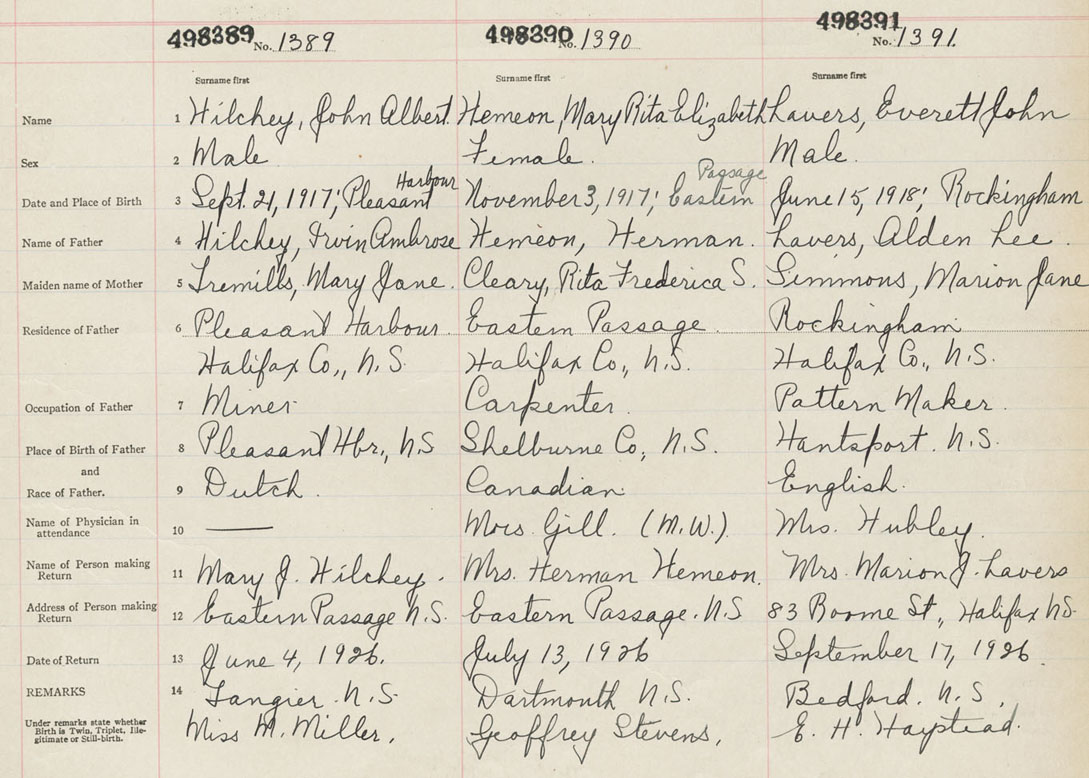 498389 No. 1389 498390 No. 1390 498391 No. 1391.
Surname first Surname first Surname first
Name 1 Hilchey, John Albert. Hemeon, Mary Rita Elizabeth Lavers, Everett John
Sex 2 Male Female. Male.
Harbour Passage
Date and Place of Birth 3 Sept. 21, 1917; Pleasant November 3, 1917; Eastern June 15, 1918; Rockingham
Name of Father 4 Hilchey, Irvin Ambrose Hemeon, Herman. Lavers, Alden Lee.
Maiden name of Mother 5 Tremills, Mary Jane. Cleary, Rita Frederica S. Simmons, Marion Jane
Residence of Father 6 Pleasant Harbour. Eastern Passage. Rockingham
Halifax Co., N.S. Halifax Co., N.S. Halifax Co., N.S.
Occupation of Father 7 Miner Carpenter. Pattern Maker.
Place of Birth of Father 8 Pleasant Hbr., N.S Shelburne Co., N.S. Hantsport. N.S.
and
Race of Father. 9 Dutch. Canadian. English.
Name of Physician in
attendance 10 —— Mrs. Gill. (M.W.) Mrs. Hubley.
Name of Person making
Return 11 Mary J. Hilchey. Mrs. Herman Hemeon. Mrs. Marion J. Lavers
Address of Person making
Return 12 Eastern Passage N.S. Eastern Passage. N.S 83 Boome St., Halifax N.S.
Date of Return 13 June 4, 1926. July 13, 1926 September 17, 1926.
REMARKS 14 Tangier. N.S. Dartmouth N.S. Bedford. N.S.
Under remarks state whether
Birth is Twin, Triplet, Ille-
gitimate or Still-birth.
Miss M. Miller, Geoffrey Stevens, E. H. Haystead.